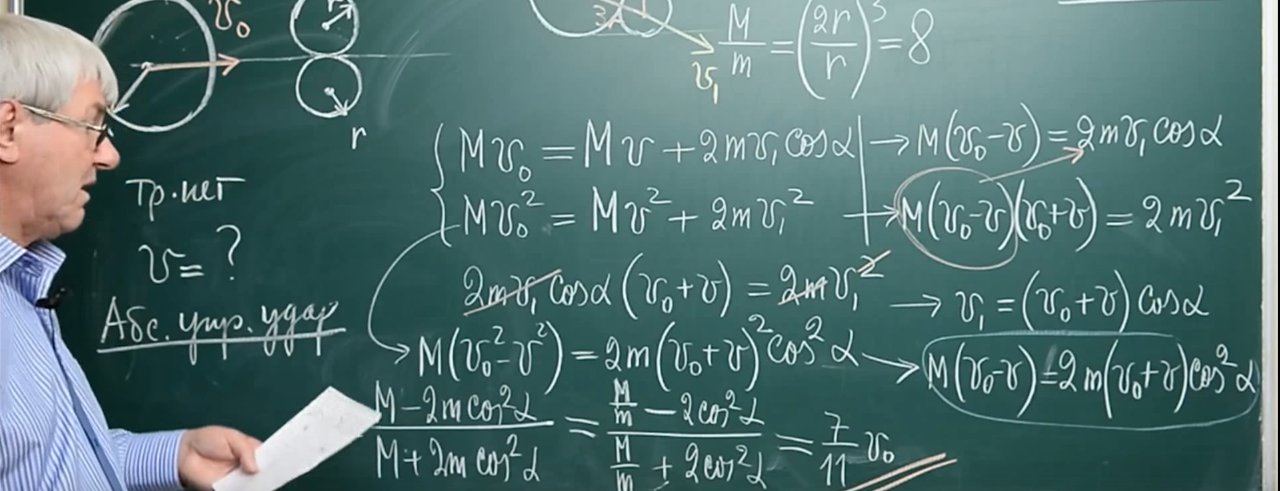 v₀
r
3α
v₁
M/m = (2r/r)³ = 8
Тр. нет
v = ?
Абс. упр. удар
{ Mv₀ = Mv + 2mv₁cosα | → M(v₀-v) = 2mv₁cosα
Mv₀² = Mv² + 2mv₁² → M(v₀-v)(v₀+v) = 2mv₁²
2mv₁cosα(v₀+v) = 2mv₁² → v₁ = (v₀+v)cosα
→ M(v₀²-v²) = 2m(v₀+v)²cos²α → M(v₀-v)=2m(v₀+v)cos²α
(M-2mcos²α)/(M+2mcos²α) = (M/m - 2cos²α)/(M/m + 2cos²α) = 7/11 v₀